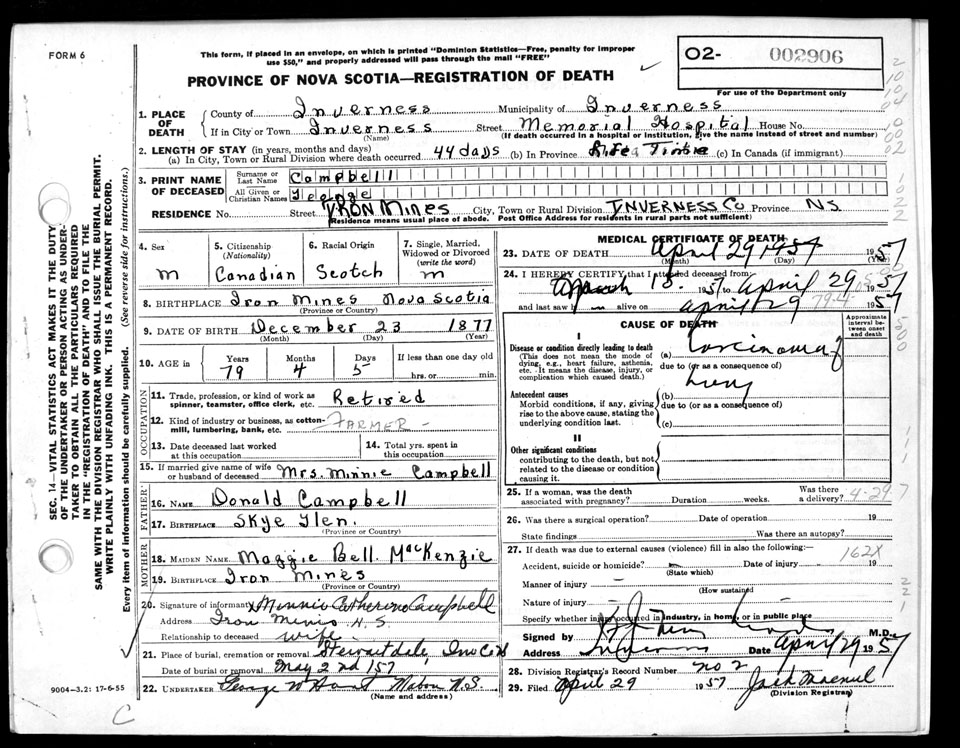 FORM 6
This form, if placed in an envelope, on which is printed "Dominion Statistics—Free, penalty for improper
use $50," and properly addressed will pass through the mail "FREE"
PROVINCE OF NOVA SCOTIA—REGISTRATION OF DEATH
O2- 002906
For use of the Department only
SEC. 14—VITAL STATISTICS ACT MAKES IT THE DUTY
OF THE UNDERTAKER OR PERSON ACTING AS UNDER-
TAKER TO OBTAIN ALL THE PARTICULARS REQUIRED
IN THE "REGISTRATION OF DEATH" AND TO FILE THE
SAME WITH THE DIVISION REGISTRAR WHO SHALL ISSUE THE BURIAL PERMIT.
WRITE PLAINLY WITH UNFADING INK. THIS IS A PERMANENT RECORD.
Every item of information should be carefully supplied. (See reverse side for instructions.)
1. PLACE OF DEATH
County of Inverness Municipality of Inverness
If in City or Town Inverness Street Memorial Hospital House No.
(Name) (If death occurred in a hospital or institution, give the name instead of street and number)
2. LENGTH OF STAY (in years, months and days)
(a) In City, Town or Rural Division where death occurred 44 days (b) In Province Life Time (c) In Canada (if immigrant)
3. PRINT NAME OF DECEASED
Surname or Last Name Campbell
All Given or Christian Names George
RESIDENCE No. Street IRON Mines City, Town or Rural Division INVERNESS Co Province N.S
Residence means usual place of abode. Post Office Address for residents in rural parts not sufficient)
4. Sex M
5. Citizenship (Nationality) Canadian
6. Racial Origin Scotch
7. Single, Married, Widowed or Divorced (write the word) m
8. BIRTHPLACE Iron Mines Nova Scotia
(Province or Country)
9. DATE OF BIRTH December 23 1877
(Month) (Day) (Year)
10. AGE in Years 79 Months 4 Days 5 If less than one day old
hrs. or min.
OCCUPATION
11. Trade, profession, or kind of work as
spinner, teamster, office clerk, etc. Retired
12. Kind of industry or business, as cotton-
mill, lumbering, bank, etc. FARMER
13. Date deceased last worked
at this occupation
14. Total yrs. spent in
this occupation
15. If married give name of wife
or husband of deceased Mrs. Minnie Campbell
FATHER
16. NAME Donald Campbell
17. BIRTHPLACE Skye Glen.
(Province or Country)
MOTHER
18. MAIDEN NAME Maggie Bell MacKenzie
19. BIRTHPLACE Iron Mines
(Province or Country)
20. Signature of informant Minnie Catherine Campbell
Address Iron Mines N.S.
Relationship to deceased wife
21. Place of burial, cremation or removal Stewartdale, Inv Co NS
Date of burial or removal May 2nd 157
22. UNDERTAKER George W Mabou N.S.
(Name and address)
9004—3.2: 17-6-55
MEDICAL CERTIFICATE OF DEATH
23. DATE OF DEATH April 29 1957 1957
(Month) (Day)
24. I HEREBY CERTIFY that I attended deceased from:
18 1957 to April 29 1957
and last saw h alive on April 29 79-4 1957
CAUSE OF DEATH
Approximate interval between onset and death
I
Disease or condition directly leading to death
(This does not mean the mode of
dying, e.g., heart failure, asthenia,
etc. It means the disease, injury, or
complication which caused death.)
(a) Carcinoma of
due to (or as a consequence of)
Lung
Antecedent causes
Morbid conditions, if any, giving
rise to the above cause, stating the
underlying condition last.
(b)
due to (or as a consequence of)
(c)
II
Other significant conditions
contributing to the death, but not
related to the disease or condition
causing it.
25. If a woman, was the death
associated with pregnancy? Duration weeks. Was there
a delivery? 4-29
26. Was there a surgical operation? Date of operation 19
State findings Was there an autopsy?
27. If death was due to external causes (violence) fill in also the following:— 162X
Accident, suicide or homicide? Date of injury 19
(State which)
Manner of injury
(How sustained
Nature of injury
Specify whether injury occurred in industry, in home, or in public place
Signed by M.D.
Address Inverness Date April 29 1957
28. Division Registrar's Record Number No 2
29. Filed April 29 1957 Jack
(Division Registrar)